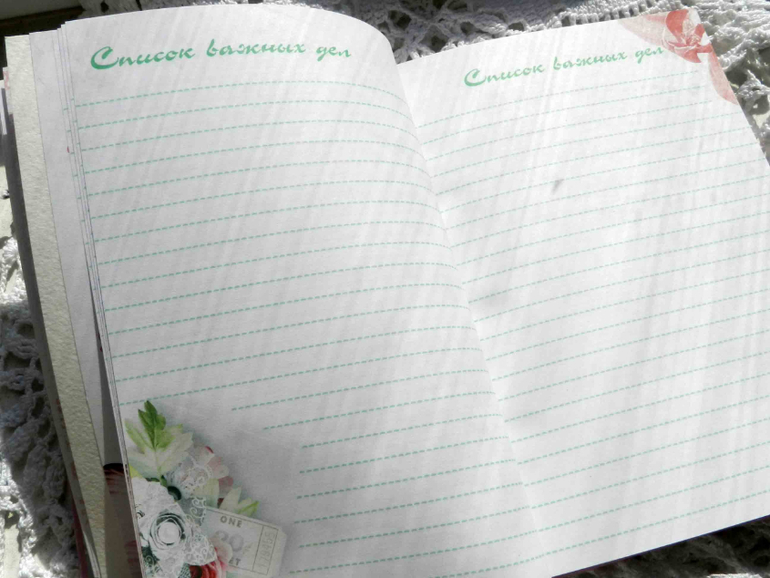 Список важных дел
Список важных дел
ONE